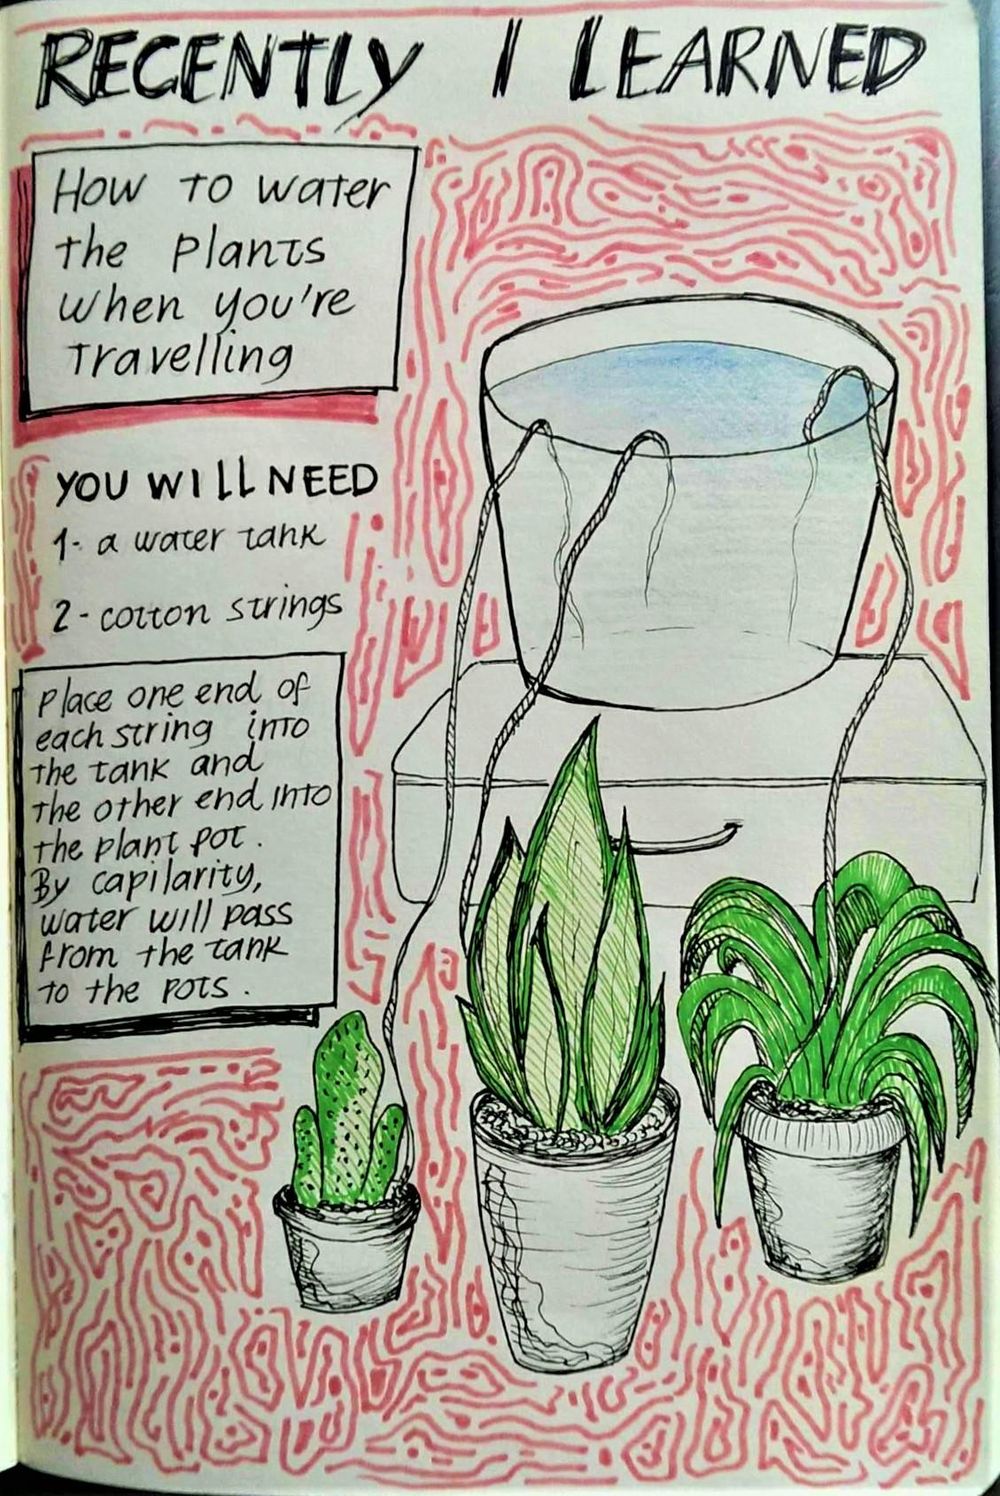 RECENTLY I LEARNED
How to water
the plants
when you're
travelling
YOU WILL NEED
1- a water tank
2- cotton strings
Place one end of
each string into
the tank and
the other end into
the plant pot.
By capilarity,
water will pass
from the tank
to the pots.